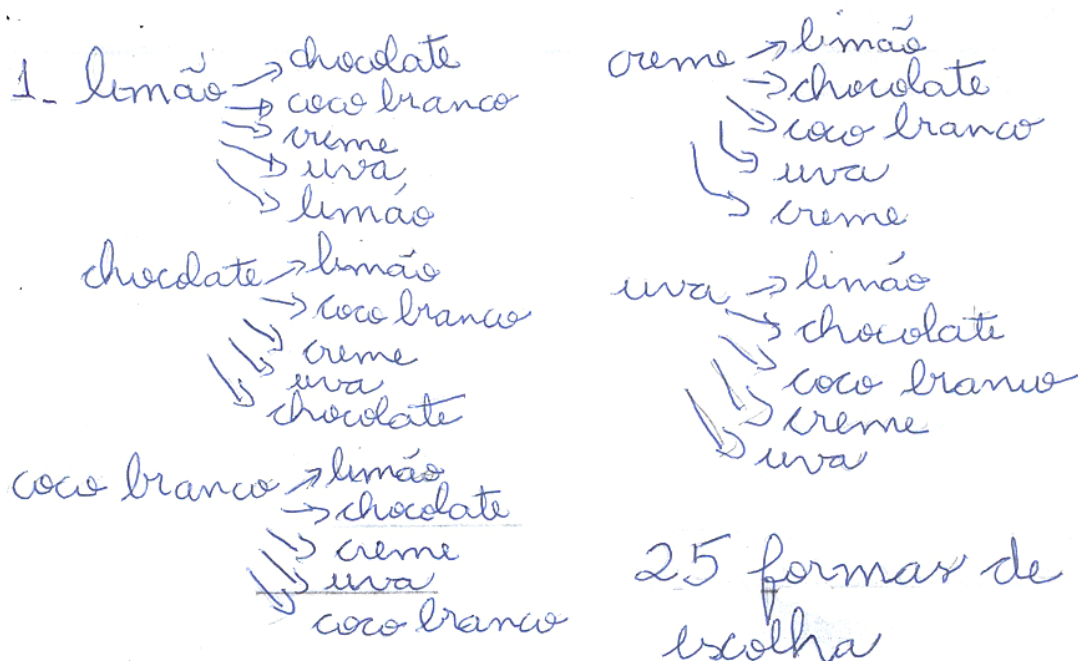 1- limão → chocolate
→ coco branco
→ creme
→ uva
→ limão
chocolate → limão
→ coco branco
→ creme
→ uva
→ chocolate
coco branco → limão
→ chocolate
→ creme
→ uva
→ coco branco
creme → limão
→ chocolate
→ coco branco
→ uva
→ creme
uva → limão
→ chocolate
→ coco branco
→ creme
→ uva
25 formas de
escolha